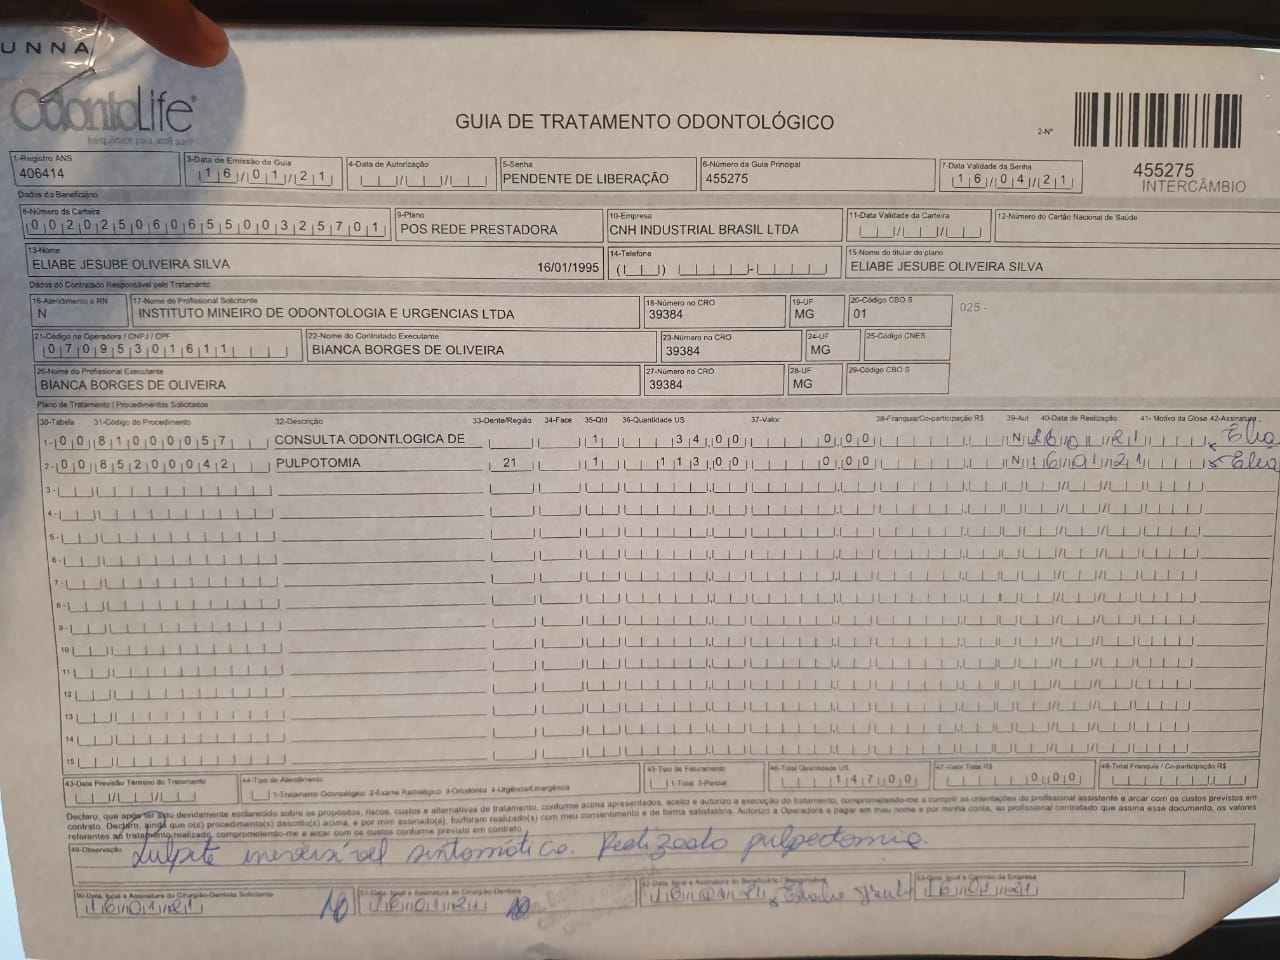 UNNA
OdontoLife
tranquilidade para você sorrir
GUIA DE TRATAMENTO ODONTOLÓGICO
2-Nº
455275
INTERCÂMBIO
1-Registro ANS
406414
3-Data de Emissão da Guia
16/01/21
4-Data de Autorização
5-Senha
PENDENTE DE LIBERAÇÃO
6-Número da Guia Principal
455275
7-Data Validade da Senha
16/04/21
Dados do Beneficiário
8-Número da Carteira
00202506065500325701
9-Plano
POS REDE PRESTADORA
10-Empresa
CNH INDUSTRIAL BRASIL LTDA
11-Data Validade da Carteira
12-Número do Cartão Nacional de Saúde
13-Nome
ELIABE JESUBE OLIVEIRA SILVA 16/01/1995
14-Telefone
15-Nome do titular do plano
ELIABE JESUBE OLIVEIRA SILVA
Dados do Contratado Responsável pelo Tratamento
16-Atendimento a RN
N
17-Nome do Profissional Solicitante
INSTITUTO MINEIRO DE ODONTOLOGIA E URGENCIAS LTDA
18-Número no CRO
39384
19-UF
MG
20-Código CBO S
01
025 -
21-Código na Operadora / CNPJ / CPF
07095301611
22-Nome do Contratado Executante
BIANCA BORGES DE OLIVEIRA
23-Número no CRO
39384
24-UF
MG
25-Código CNES
26-Nome do Profissional Executante
BIANCA BORGES DE OLIVEIRA
27-Número no CRO
39384
28-UF
MG
29-Código CBO S
Plano de Tratamento / Procedimentos Solicitados
30-Tabela 31-Código do Procedimento 32-Descrição 33-Dente/Região 34-Face 35-Qtd 36-Quantidade US 37-Valor 38-Franquia/Co-participação R$ 39-Aut 40-Data de Realização 41- Motivo da Glosa 42-Assinatura
1- 00 81000057 CONSULTA ODONTLOGICA DE 1 34,00 0,00 N 16/01/21
2- 00 85200042 PULPOTOMIA 21 1 113,00 0,00 N 16/01/21
3-
4-
5-
6-
7-
8-
9-
10
11
12
13
14
15
43-Data Previsão Término do Tratamento
44-Tipo de Atendimento
1-Tratamento Odontológico 2-Exame Radiológico 3-Ortodontia 4-Urgência/Emergência
45-Tipo de Faturamento
1-Total 2-Parcial
46-Total Quantidade US
147,00
47-Valor Total R$
0,00
48-Total Franquia / Co-participação R$
Declaro, que após ter sido devidamente esclarecido sobre os propósitos, riscos, custos e alternativas de tratamento, conforme acima apresentados, aceito e autorizo a execução do tratamento, comprometendo-me a cumprir as orientações do profissional assistente e arcar com os custos previstos em
contrato. Declaro, ainda que o(s) procedimento(s) descrito(s) acima, e por mim assinado(s), foi/foram realizado(s) com meu consentimento e de forma satisfatória. Autorizo a Operadora a pagar em meu nome e por minha conta, ao profissional contratado que assina esse documento, os valores
referentes ao tratamento realizado, comprometendo-me a arcar com os custos conforme previsto em contrato.
49-Observação
Pulpite irreversível sintomática. Realizado pulpectomia.
50-Data, local e Assinatura do Cirurgião-Dentista Solicitante
16/01/21
51-Data, local e Assinatura do Cirurgião-Dentista
16/01/21
52-Data, local e Assinatura do Beneficiário / Responsável
16/01/21
53-Data, local e Carimbo da Empresa
16/01/21